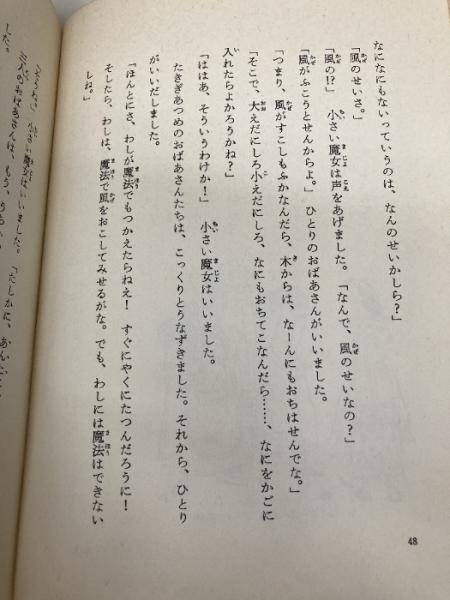 なになにもないっていうのは、なんのせいかしら？」
「風のせいさ。」
「風の！？」　小さい魔女は声をあげました。「なんで、風のせいなの？」
「風がふこうとせんからよ。」ひとりのおばあさんがいいました。
「つまり、風がすこしもふかなんだら、木からは、なーんにもおちはせんでな。」
「そこで、大えだにしろ小えだにしろ、なにもおちてこなんだら……、なにをかごに
入れたらよかろうかね？」
「ははあ、そういうわけか！」　小さい魔女はいいました。
たきぎあつめのおばあさんたちは、こっくりとうなずきました。それから、ひとり
がいいだしました。
「ほんとにさ、わしが魔法でもつかえたらねえ！　すぐにやくにたつんだろうに！
そしたら、わしは、魔法で風をおこしてみせるがな。でも、わしには魔法はできない
しね。」
48
小さい魔女はいいました。「たしかに、あんた
した。
三人のおばあさんは、もう、